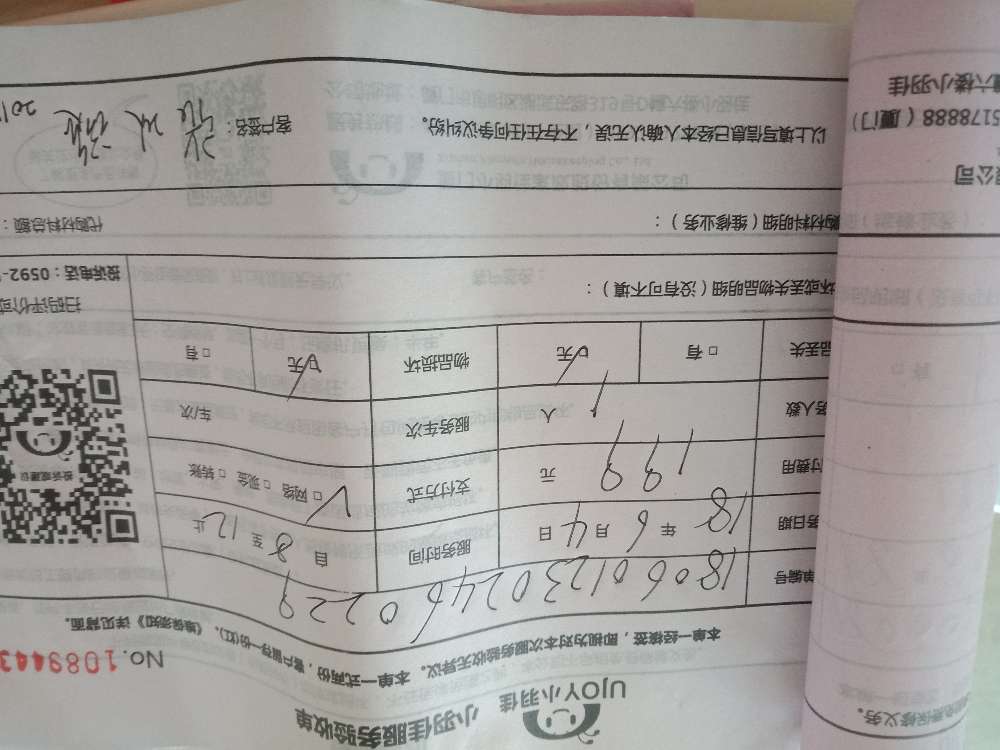 UJOY小羽佳 小羽佳服务验收单
No.1089443
本单一经核签，即视为对本次服务验收无异议。本单一式两份，客户留存一份(红)，《维保须知》详见背面。
单编号 1806012302460229
务日期 18年6月4日 服务时间 自8至12止
付费用 199元 支付方式 ☑网络 □现金 □转账
务人数 1人 服务车次 车次
品丢失 □有 ☑无 物品损坏 ☑无 □有
投诉或建议
扫码评价或
投诉电话：0592-
坏或丢失物品明细（没有可不填）：
购材料明细（维修业务）： 代购材料总额：
以上填写信息已经本人确认无误，不存在任何争议纠纷。 客户签名： 201
免费保修义务。
限公司
5178888（厦门）
六楼小羽佳